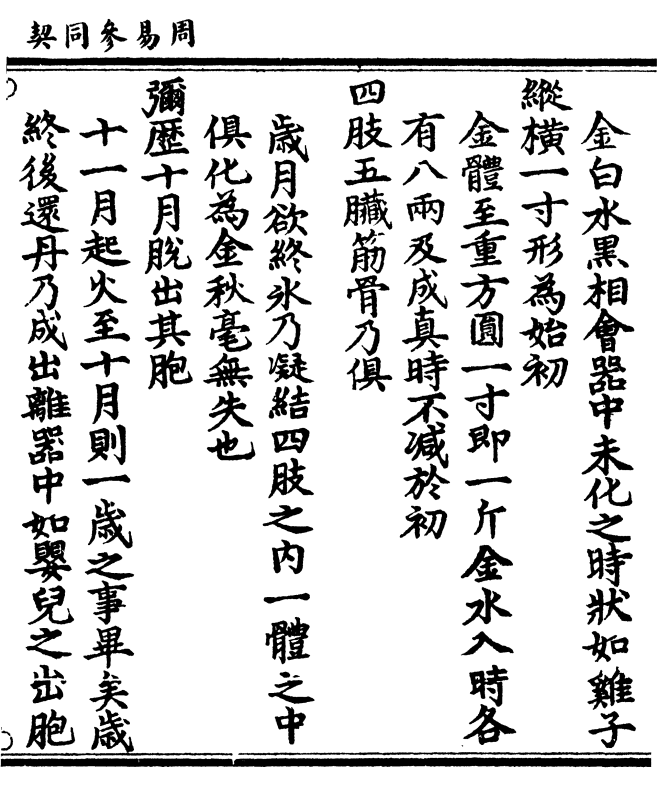 周易參同契
金白水黑相會器中未化之時狀如雞子
縱橫一寸形為始初
金體至重方圓一寸即一斤金水入時各
有八兩及成真時不減於初
四肢五臟筋骨乃俱
歲月欲終氷乃凝結四肢之內一體之中
俱化為金秋毫無失也
彌歷十月脫出其胞
十一月起火至十月則一歲之事畢矣歲
終後還丹乃成出離器中如嬰兒之出胞